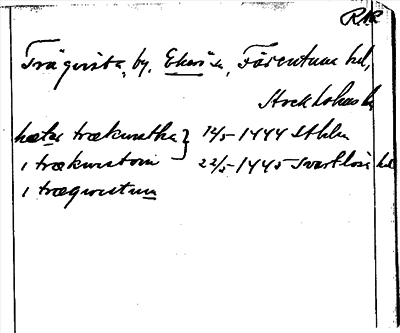 RAp
Träqvista, by, Ekerö sn, Färentuna hd,
Stockholms l.
hæter trækwistha } 12/5 1444 Sthlm
i trækwistom } 22/5 1445 Svartlösa hd
i træqwistum